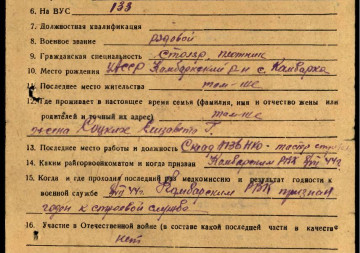 6. На ВУС 133
7. Должностная квалификация
8. Военное звание рядовой
9. Гражданская специальность Столяр плотник
10. Место рождения УАССР Камбарский р-н с. Камбарка
11. Последнее место жительства там-же
12. Где проживает в настоящее время семья (фамилия, имя и отчество жены или
родителей и точный их адрес) там-же
жена Елизавета Г.
13. Последнее место работы и должность
14. Каким райгорвоенкоматом и когда призван Камбарским РВК 44г.
15. Когда и где проходил последний раз медкомиссию и результат годности к
военной службе 44г. Камбарским РВК признан
годен к строевой службе
16. Участие в Отечественной войне (в составе какой последней части и в качестве
нет